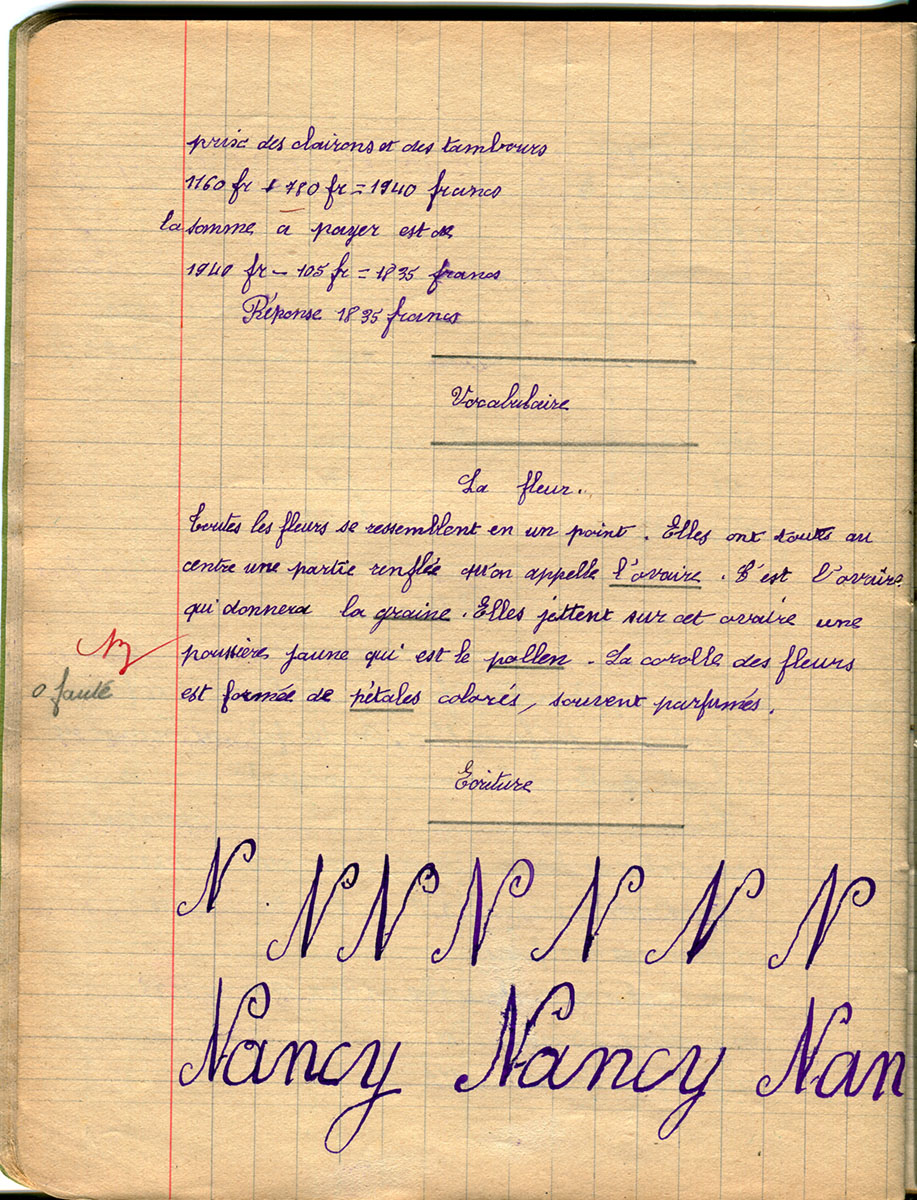 prix des clairons et des tambours
1160 fr + 780 fr = 1940 francs
la somme à payer est de
1940 fr – 105 fr = 1835 francs
Réponse 1835 francs
Vocabulaire
La fleur.
Toutes les fleurs se ressemblent en un point. Elles ont toute au
centre une partie renflée qu'on appelle l'ovaire. C'est l'ovaire
qui donnera la graine. Elles jettent sur cet ovaire une
poussière jaune qui est le pollen. La corolle des fleurs
0 faute
est formée de pétales colorés, souvent parfumés.
Ecriture
N N N N N N N
Nancy Nancy Nan